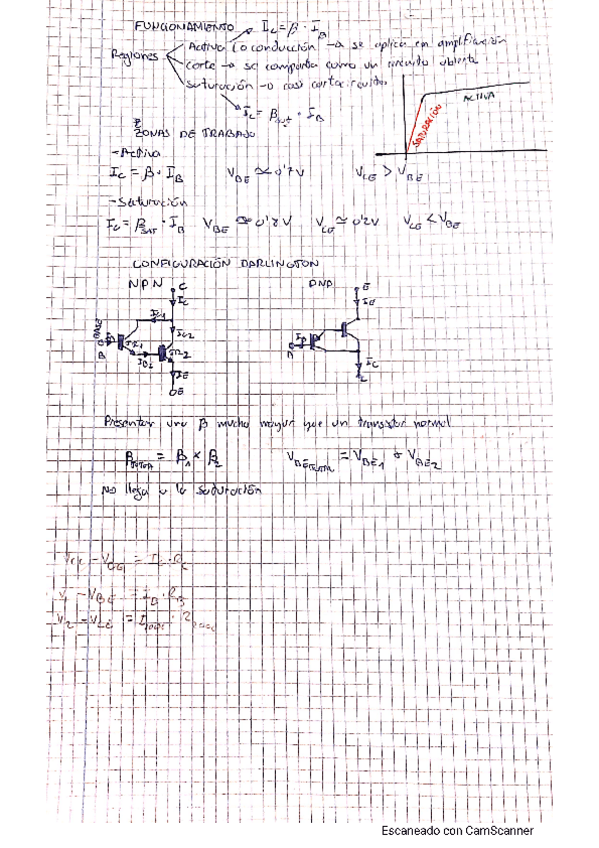 FUNCIONAMIENTO → Ic = β · IB
Regiones
Activa (o conducción) → se aplica en amplificación
corte → se comporta como un circuito abierto
saturación → casi cortocircuito
Ic = βsat · IB
SATURACIÓN
ACTIVA
ZONAS DE TRABAJO
- Activa
Ic = β · IB VBE ≃ 0'7V VCE > VBE
- Saturación
Ic = βSAT · IB VBE ≃ 0'8V VCE ≃ 0'2V VCE < VBE
CONFIGURACIÓN DARLINGTON
NPN
C
Ic
Ic1
Ic2
BASE
B
TR1
IB2
TR2
IE
E
PNP
E
IE
IB
B
Ic
C
Presentan una β mucho mayor que un transistor normal
βTOTAL = β1 x β2 VBETOTAL = VBE1 + VBE2
No llega a la saturación
- VBE = IB · RB
V2 - VCE =
Escaneado con CamScanner